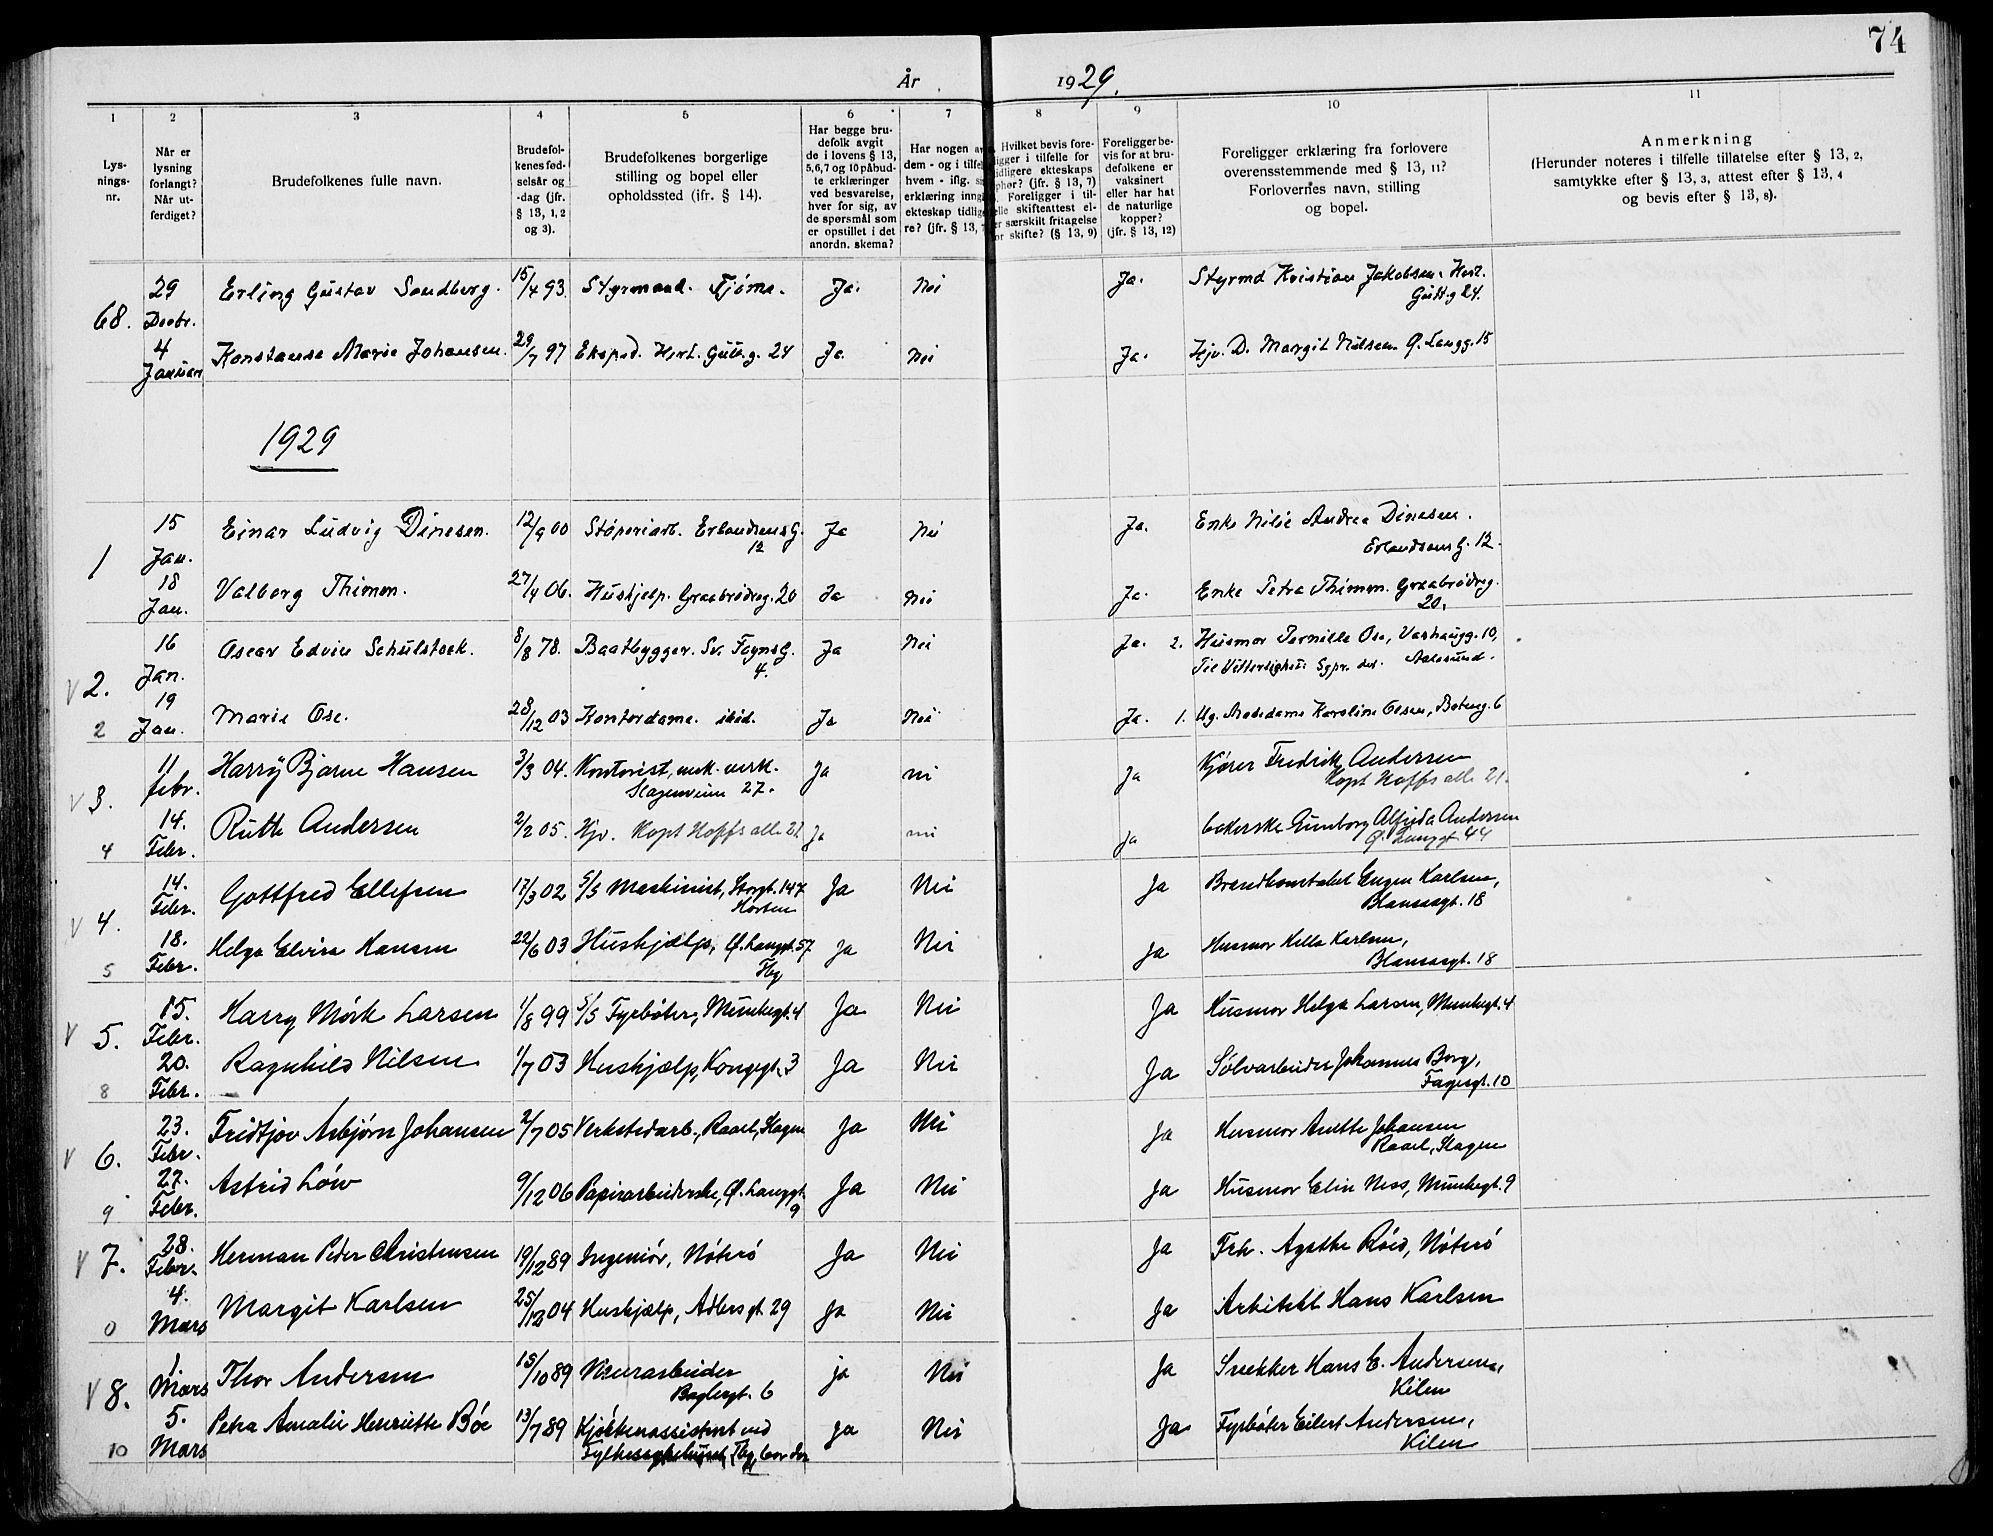 74
År 1929.
1 2 3 4 5 6 7 8 9 10 11
Lysnings-nr.
Når er lysning forlangt? Når utferdiget?
Brudefolkenes fulle navn.
Brudefolkenes fødselsår og -dag (jfr. § 13, 1, 2 og 3).
Brudefolkenes borgerlige stilling og bopel eller opholdssted (ifr. § 14).
Har begge brudefolk avgit de i lovens § 13, 5,6,7 og 10 påbudte erklæringer ved besvarelse, hver for sig, av de spørsmål som er opstillet i det anordn. skema?
Har nogen av dem - og i tilfelle hvem - iflg. erklæring inngått ekteskap tidligere? (jfr. § 13,
Hvilket bevis foreligger i tilfelle for tidligere ekteskaps ophør? (jfr. § 13, 7) Foreligger i tilfelle skifteattest eller særskilt fritagelse for skifte? (§ 13, 9)
Foreligger bevis for at brudefolkene er vaksinert eller har hat de naturlige kopper? (jfr. § 13, 12)
Foreligger erklæring fra forlovere overensstemmende med § 13, 11? Forlovernes navn, stilling og bopel.
Anmerkning
(Herunder noteres i tilfelle tillatelse efter § 13, 2, samtykke efter § 13, 3, attest efter § 13, 4 og bevis efter § 13, 8).
68. 29 Decbr. Erling Gustav Sandberg. 15/4 93. Styrmand. Tjømø. Ja. Nei Ja. Styrmd Kristian Jakobsen. Hert. Gutt.g 24.
4 Januar Konstanse Marie Johansen. 29/7 97 Eksped. Hert. Gutt.g. 24 Ja Nei Ja. Hjv. D. Margit Nilsen Ø. Langg. 15
1929
1 15 Jan. Einar Ludvig Dinesen. 12/9 00 Støperiarb. Erlandsens G. 12 Ja Nei Ja. Enke Andrea Dinesen. Erlandsens G. 12.
18 Jan. Valborg Thimm. 27/4 06. Hushjelp. Graabrødreg. 20 Ja Nei Ja. Enke Petra Thimm. Graabrødreg. 20.
V 2. 16 Jan. Oscar Edvin Schulstock. 8/8 78. Baatbygger. Sv. Foyns G. 4. Ja Nei Ja. 2. Husmor Pernille Ose, 10, Aalesund.
2 19 Jan. Marie Ose. 28/12 03 Kontordame. ibid. Ja Nei Ja. 1. Ug. Motedame Karoline Olsen, 6
V 3. 11 febr. Harry Bjarne Hansen 3/3 04. Kontorist, mek. verk. Slagenveien 27. Ja nei Ja Kjører Fredrik Andersen Kapt Hoffs alle 21.
4 14. Febr. Ruth Andersen 2/2 05. Hjv. Kapt Hoffs alle 21 Ja nei Ja Gunborg Alfrida Andersen Ø. Langgt 44
V 4. 14. Febr. Gottfred Ellefsen 17/3 02 S/S Maskinist, Storgt. 147 Horten Ja Nei Ja Brandkonstabel Eugen Karlsen, 18
5 18. Febr. Helga Elvira Hansen 22/6 03 Hushjælp, Ø. Langgt. 57 Tbg Ja Nei Ja Husmor Karlsen, 18
V 5. 15. Febr. Harry Mørk Larsen 1/8 99 S/S Fyrbøter, Munkegt. 4 Ja Nei Ja Husmor Helga Larsen, Munkegt. 4
8 20. Febr. Ragnhild Nilsen 1/7 03 Hushjælp, Kongegt. 3 Ja Nei Ja Sølvarbeider Johannes Borg, 10
V 6. 23. Febr. Fridtjov Asbjørn Johansen 2/7 05 Verkstedarb., Raael, Slagen Ja Nei Ja Husmor Anette Johansen Raael, Slagen
9 27. Febr. Astrid Löw 9/12 06 Papirarbeiderske, Ø. Langgt. 9 Ja Nei Ja Husmor Elin Ness, Munkegt. 9
V 7. 28. Febr. Herman Peder Christensen 19/12 89 Ingeniør, Nøterø Ja Nei Ja Frk. Agathe Röed, Nøterø
0 4. Mars Margit Karlsen 25/12 04 Hushjælp, Adlers gt 29 Ja Nei Ja Arkitekt Hans Karlsen
V 8. 1 Mars Thor Andersen 15/10 89 Murarbeider Baglergt. 6 ja Nei Ja Snekker Hans E. Andersen, Kilen
10 5. Mars Petra Amalie Henriette Bøe 13/7 89 Kjøkkenassistent ved Fylkessykehuset, Tbg, bor der Ja Nei Ja Fyrbøter Eilert Andersen, Kilen